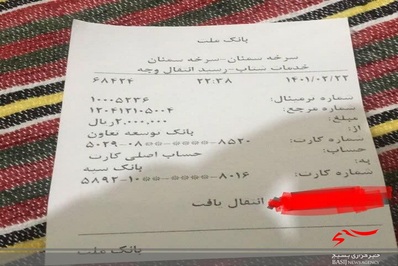 بانک ملت
سرخه سمنان-سرخه سمنان
خدمات شتاب-رسید انتقال وجه
۱۴۰۱/۰۲/۲۲ ۲۲:۳۸ ۶۸۴۲۴
شماره ترمینال: ۱۰۰۰۵۲۳۶
شماره مرجع: ۱۲۰۴۱۲۱۰۵۰۰۴
مبلغ: ۲,۰۰۰,۰۰۰ریال
از: بانک توسعه تعاون
شماره کارت: ۵۰۲۹-۰۸**-****-۸۵۲۰
حساب: حساب اصلی کارت
به: بانک سپه
شماره کارت: ۵۸۹۲-۱۰**-****-۸۰۱۶
انتقال یافت
بانک ملت
خبرگزاری بسیج
BASIJ NEWS AGENCY